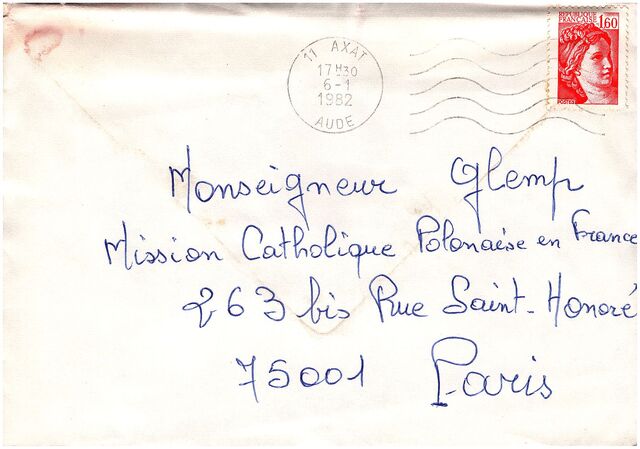 RÉPUBLIQUE
FRANÇAISE 1,60
POSTES
11 AXAT
17H30
6-1
1982
AUDE
Monseigneur Glemp
Mission Catholique Polonaise en France
263 bis Rue Saint-Honoré
75001 Paris